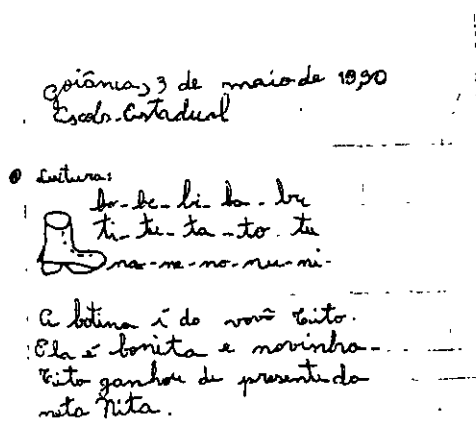 Goiânia, 3 de maio de 1990
Escola Estadual
Leitura:
bo-be-bi-ba-bu
ti-te-ta-to-tu
na-ne-no-nu-ni-
A botina é do vovô Tito.
Ela é bonita e novinha.
Tito ganhou de presente da
neta Nita.